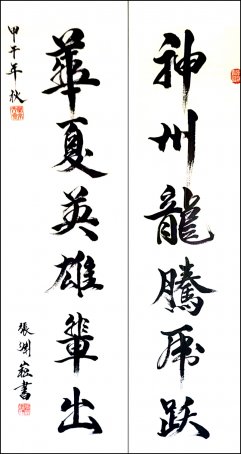 神州龍騰虎跃
華夏英雄輩出
甲午年秋
張淵崧書